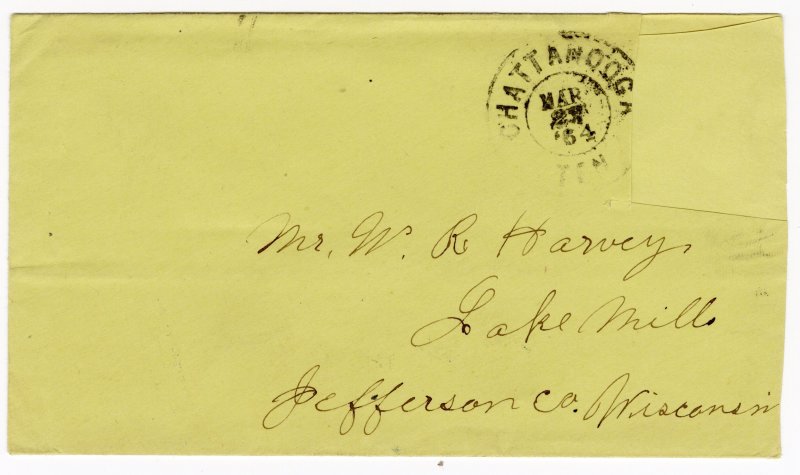 CHATTANOOGA
MAR
'64
TEN
Mr. W. R Harvey
Lake Mills
Jefferson Co. Wisconsin